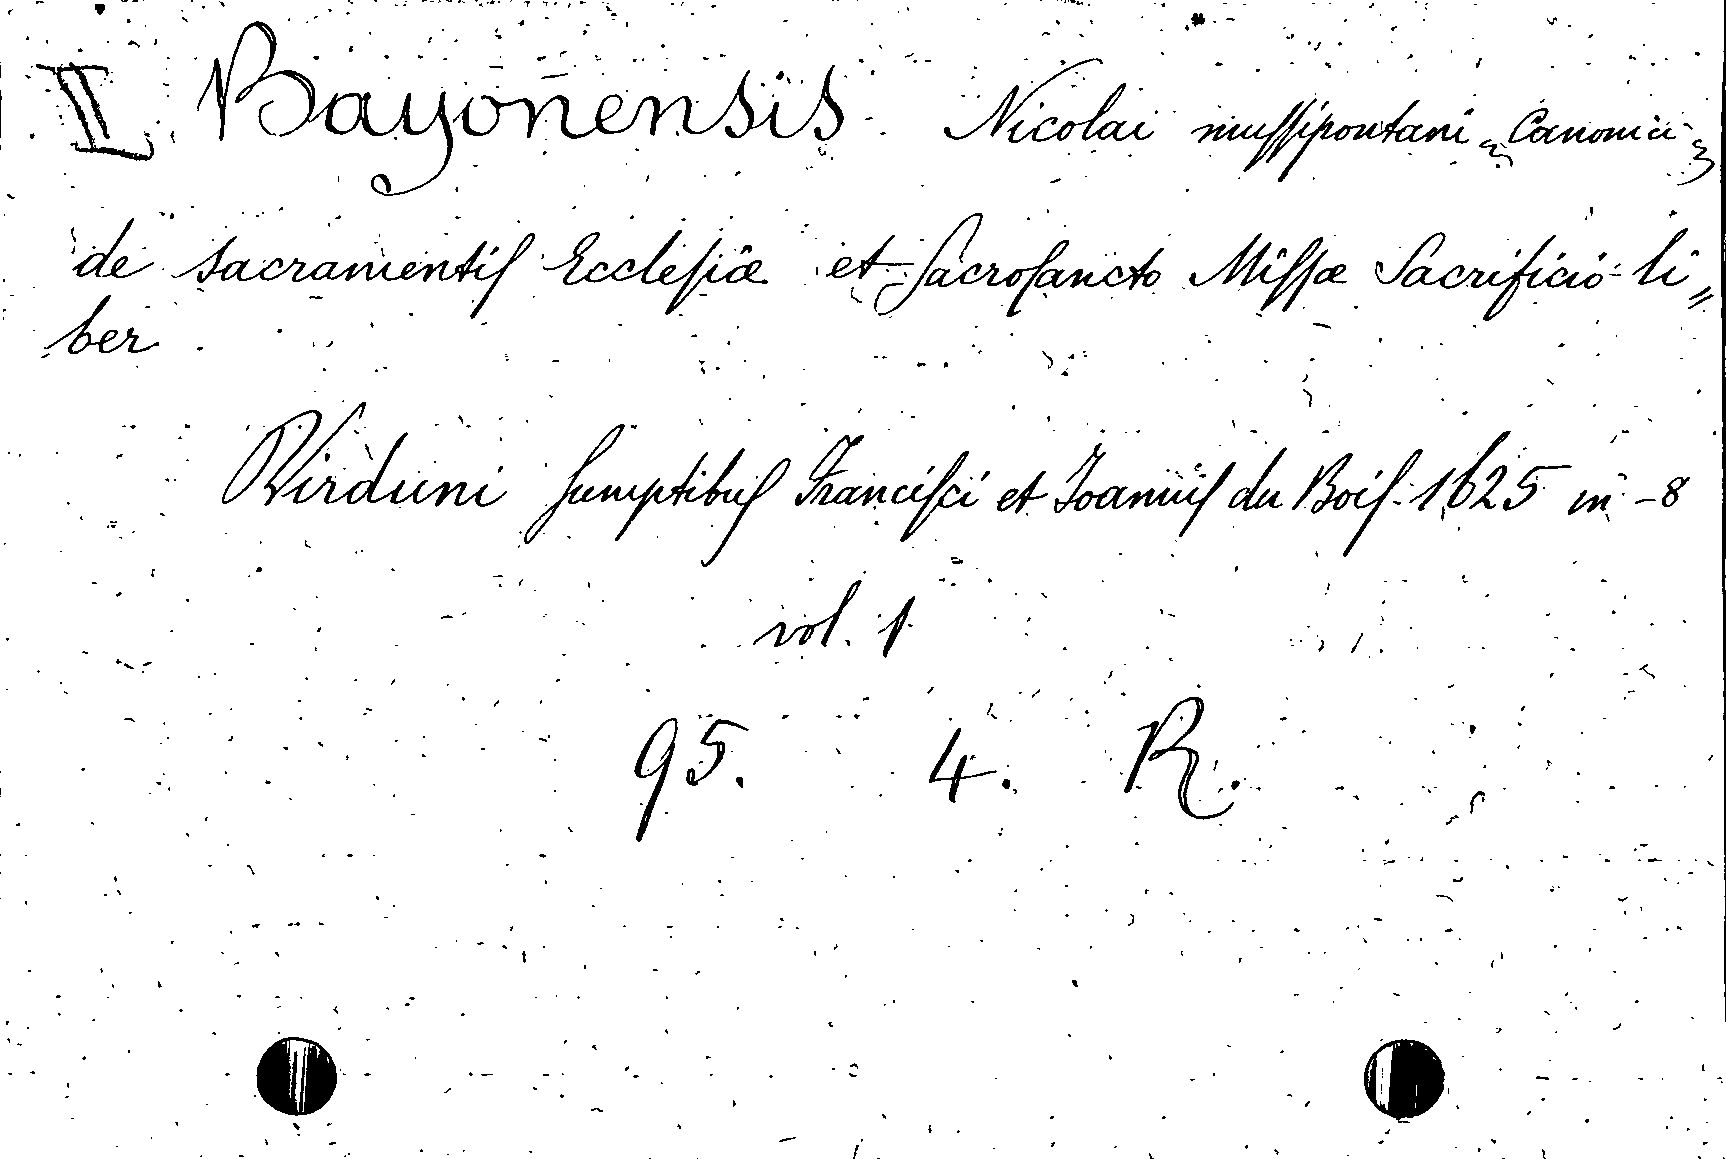 II Bayonensis Nicolai mussipontani „ Canonici „
de sacramentiſ Eccleſiæ et Sacroſancto Miſſæ Sacrificio li„
ber.
Virduni ſumptibuſ Franciſci et Joanniſ du Boiſ. 1625 in-8
vol. 1
95. 4. R.